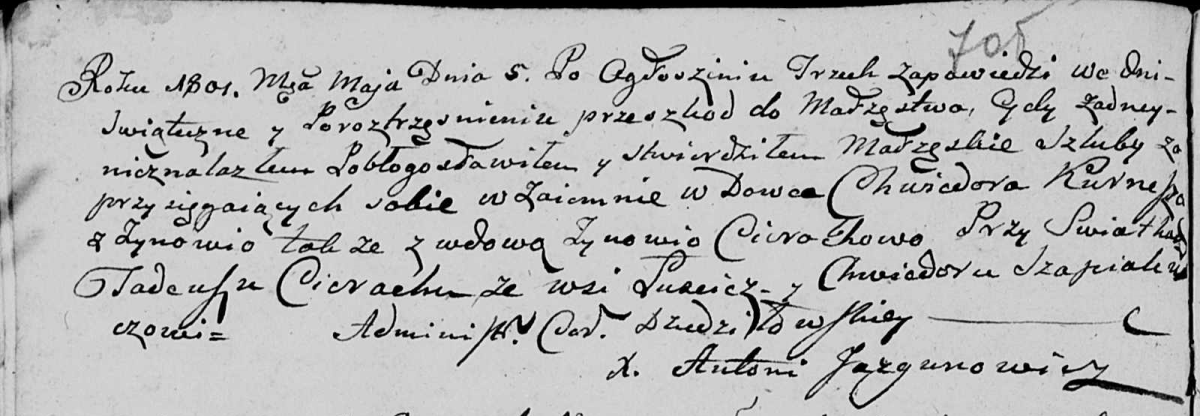 705
Roku 1801. Mca Maja Dnia 5. Po Ogłoszeniu Trzech Zapowiedzi we dni-
Swiąteczne y Poroztrząsnieniu przeszkod do Małzęstwa, Gdy Zadney-
nieznalazłem Pobłogosławiłem y stwierdziłem Małzęskie Szluby za
przysięgaiących sobie w Zaiemnie w Dowca Chwiedora
z Zynowio takze z wdową Zynowio Cierachowo Przy
Tadeuszu Cierachu ze wsi y Chwiedoru
czowi= Administr. Dziedziłowskiey
x. Antoni Jazgunowicz